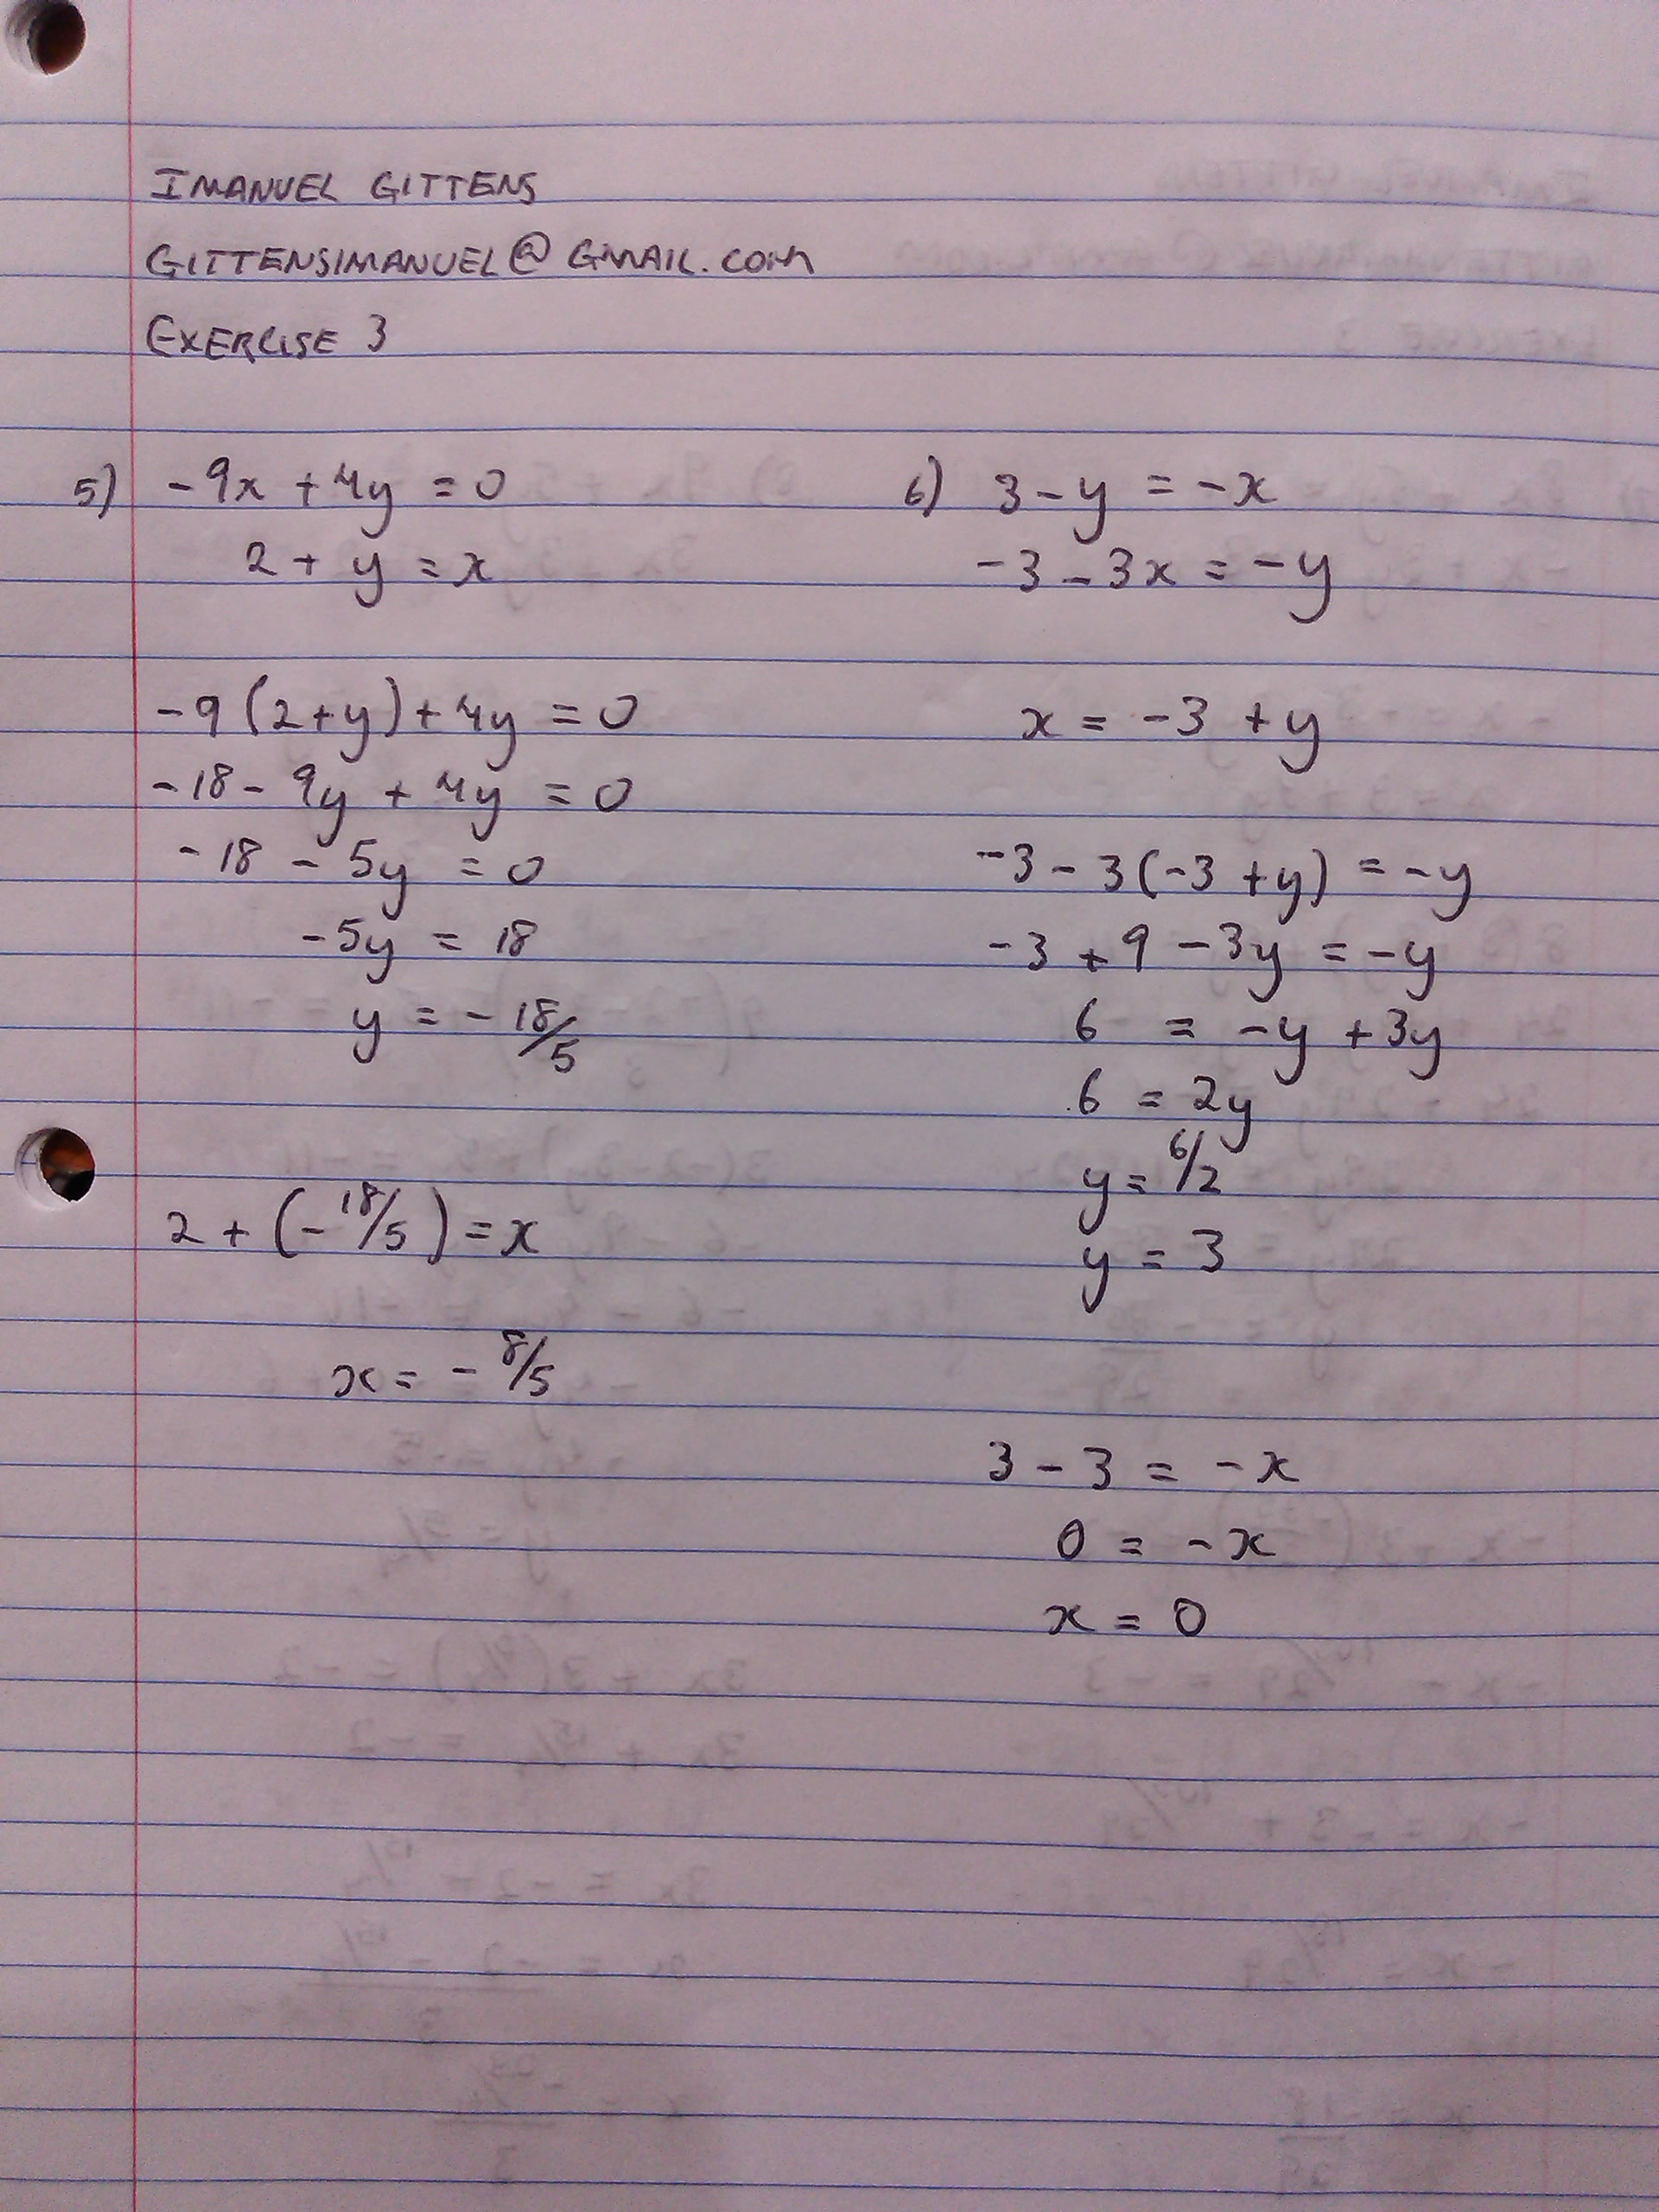 IMANUEL GITTENS
GITTENSIMANUEL@GMAIL.COM
EXERCISE 3
5) -9x + 4y = 0
2 + y = x
-9(2+y)+4y = 0
-18 - 9y + 4y = 0
-18 - 5y = 0
-5y = 18
y = -18/5
2 + (-18/5) = x
x = -8/5
6) 3 - y = -x
-3 - 3x = -y
x = -3 + y
-3 - 3(-3 + y) = -y
-3 + 9 - 3y = -y
6 = -y + 3y
6 = 2y
y = 6/2
y = 3
3 - 3 = -x
0 = -x
x = 0